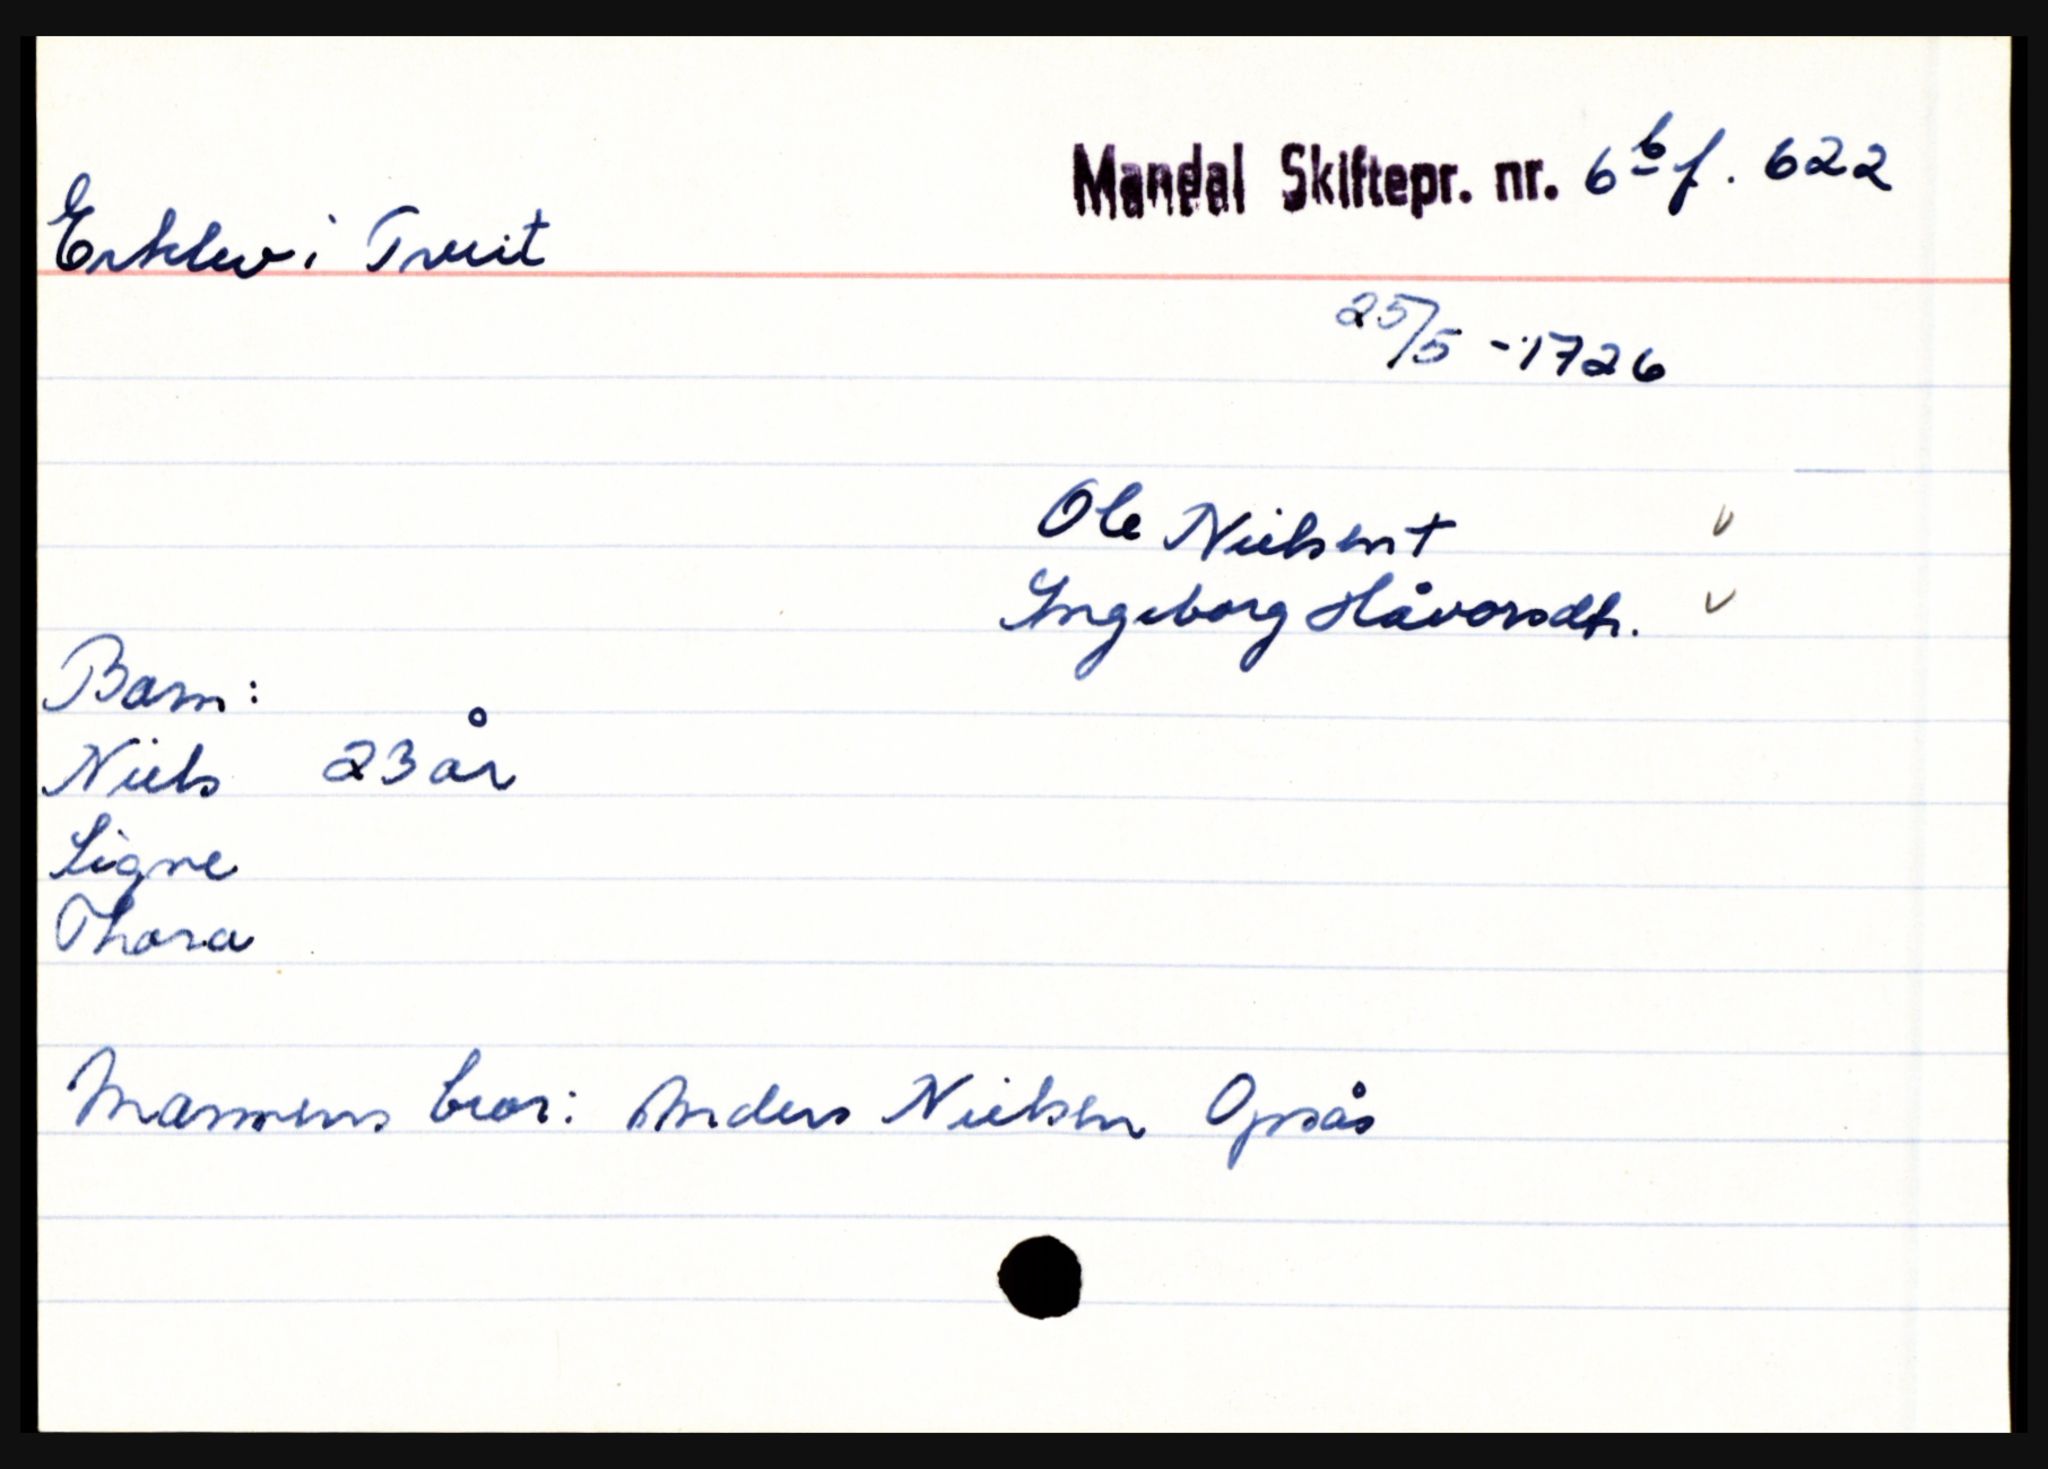 Mandal Skiftepr. nr. 6 b f. 622
Erklev i Tveit
25/5 - 1726
Ole Nielsen † v
Ingeborg Håvorsdtr. v
Barn:
Niels 23 år
Signe
Thora
Mannens bror: Anders Nielsen Opsås